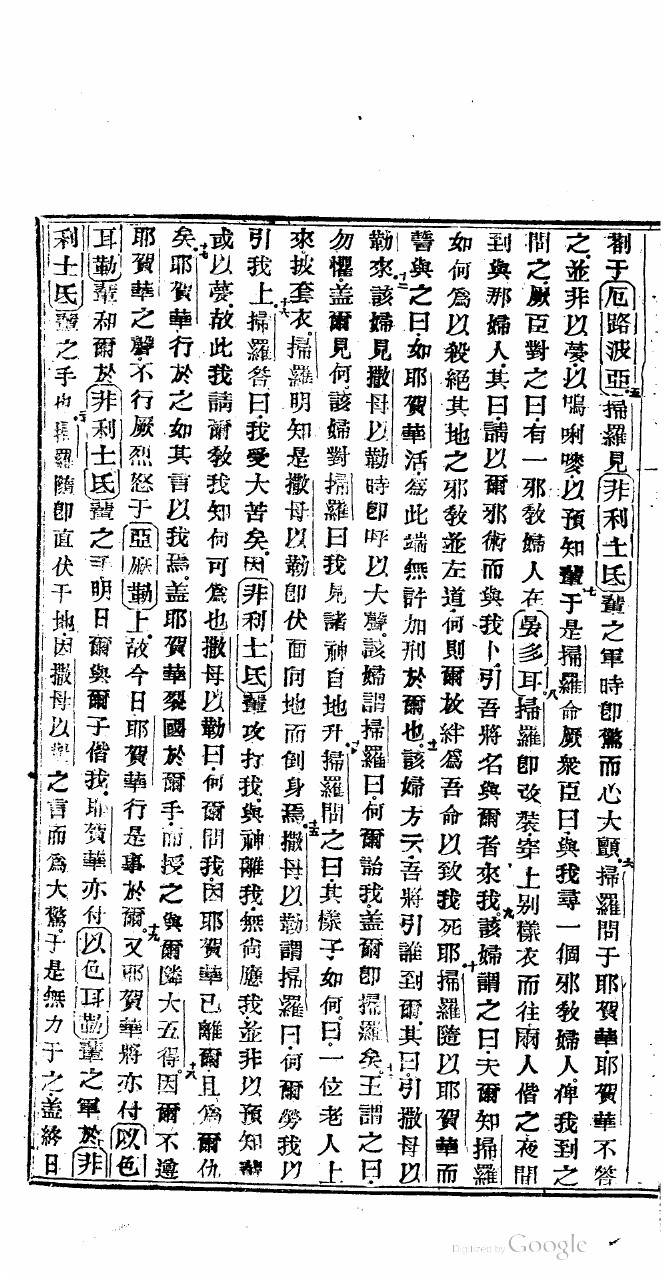 剳于厄路波亞五掃羅見非利士氏輩之軍時卽驚而心大顫六掃羅問于耶賀華耶賀華不答
之並非以夢以嗚唎嘜以預知輩七于是掃羅命厥衆臣曰與我尋一個邪敎婦人俾我到之
問之厥臣對之曰有一邪敎婦人在晏多耳八掃羅卽改裝穿上别樣衣而往兩人偕之夜間
到與那婦人其曰請以爾邪術而與我卜引吾將名與爾者來我九該婦謂之曰夫爾知掃羅
如何爲以殺絕其地之邪敎並左道何則爾放絆爲吾命以致我死耶十掃羅隨以耶賀華而
誓與之曰如耶賀華活爲此端無許加刑於爾也十一該婦方云吾將引誰到爾其曰引撒母以
勒來十二該婦見撒母以勒時卽呼以大聲該婦謂掃羅曰何爾詒我蓋爾卽掃羅矣十三王謂之曰
勿懼蓋爾見何該婦對掃羅曰我見諸神自地升十四掃羅問之曰其樣子如何曰一位老人上
來披套衣掃羅明知是撒母以勒卽伏面向地而倒身焉十五撒母以勒謂掃羅曰何爾勞我以
引我上十六掃羅答曰我受大苦矣因非利士氏輩攻打我與神離我無尙應我並非以預知輩
或以夢故此我請爾敎我知何可爲也十七撒母以勒曰何爾問我因耶賀華已離爾且爲爾仇
矣耶賀華行於之如其言以我焉蓋耶賀華裂國於爾手而授之與爾隣大五得十八因爾不遵
耶賀華之聲不行厥烈怒于亞厥勒上故今日耶賀華行是事於爾十九又耶賀華將亦付以色
耳勒輩和爾於非利士氏輩之手明日爾與爾子偕我耶賀華亦付以色耳勒輩之軍於非
利士氏輩之手也二十掃羅隨卽直伏于地因撒母以勒之言而爲大驚于是無力于之蓋終日
Digitized by Google